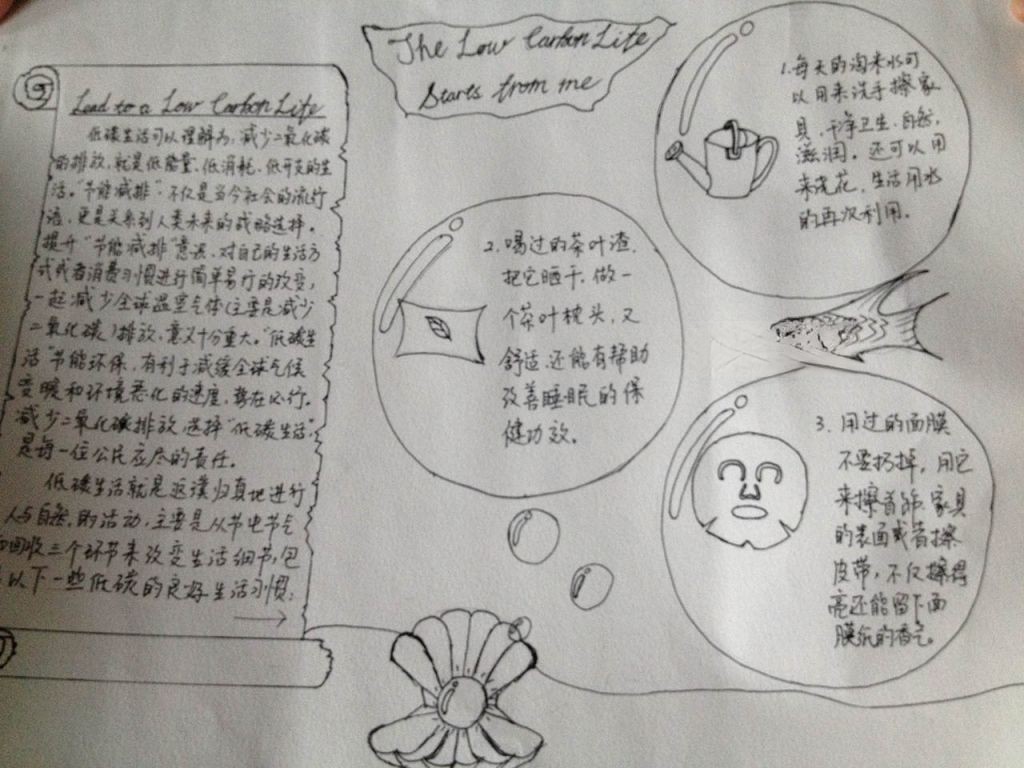 The Low Carbon Life
Starts from me
Lead to a Low Carbon Life
低碳生活可以理解为,减少二氧化碳
的排放,就是低能量、低消耗、低开支的生
活。"节能减排",不仅是当今社会的流行
语,更是关系到人类未来的战略选择。
提升"节能减排"意识,对自己的生活方
式或者消费习惯进行简单易行的改变,
一起减少全球温室气体(主要是减少
二氧化碳)排放,意义十分重大。"低碳生
活"节能环保,有利于减缓全球气候
变暖和环境恶化的速度,势在必行。
减少二氧化碳排放,选择"低碳生活",
是每一位公民应尽的责任。
低碳生活就是返璞归真地进行
人与自然的活动,主要是从节电节气
和回收三个环节来改变生活细节,包
以下一些低碳的良好生活习惯:
1.每天的淘米水可
以用来洗手擦家
具,干净卫生,自然,
滋润。还可以用
来浇花,生活用水
的再次利用。
2.喝过的茶叶渣,
把它晒干,做一
个茶叶枕头,又
舒适,还能有帮助
改善睡眠的保
健功效。
3.用过的面膜
不要扔掉,用它
来擦首饰、家具
的表面或者擦
皮带,不仅擦得
亮还能留下面
膜纸的香气。